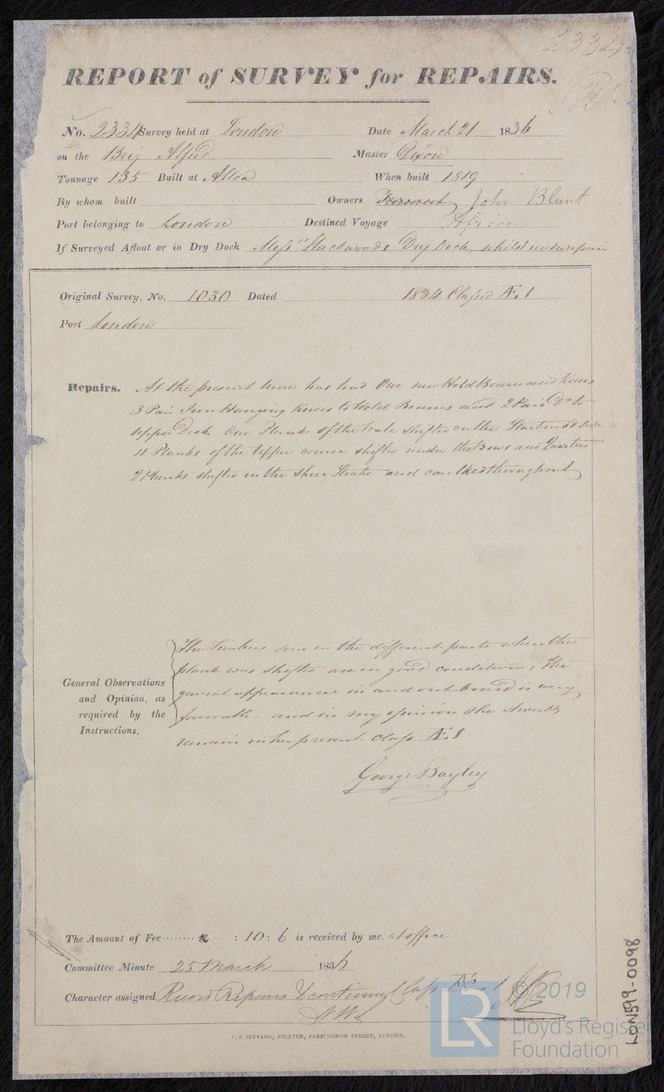 2334
REPORT of SURVEY for REPAIRS.
No. 2334 Survey held at London Date March 21 1836
on the Brig Alfred Master Dixon
Tonnage 135 Built at Alloa When built 1819
By whom built Owners John Blunt
Port belonging to London Destined Voyage Africa
If Surveyed Afloat or in Dry Dock Messrs Fletchwoods Dry Dock whilst under repair
Original Survey, No. 1030 Dated 1834 Classed Æ 1
Port London
Repairs. At the present time has had One new Hold Beam and Knees
3 Pair Iron Hanging Knees to Hold Beams and 2 Pair Do to
Upper Deck One Plank of the Wale shifted on the Starboard side
11 Planks of the Upper course shifted under the Bows and Quarters
2 Planks shifted in the Sheer Strake and caulked throughout
General Observations and Opinion, as required by the Instructions.
The Timbers seen in the different parts where the
plank was shifted are in good condition, the
general appearance in and out board is very
favorable and in my opinion she should
remain in her present class Æ 1
George Bayley
The Amount of Fee........ £ : 10 : 6 is received by me. at office
Committee Minute 25 March 1836
Character assigned Record Repairs & continued Class Æ 1
C. F. SEYFANG, PRINTER, FARRINGDON STREET, LONDON.
LON599-0098
LR
© 2019
Lloyd's Register
Foundation